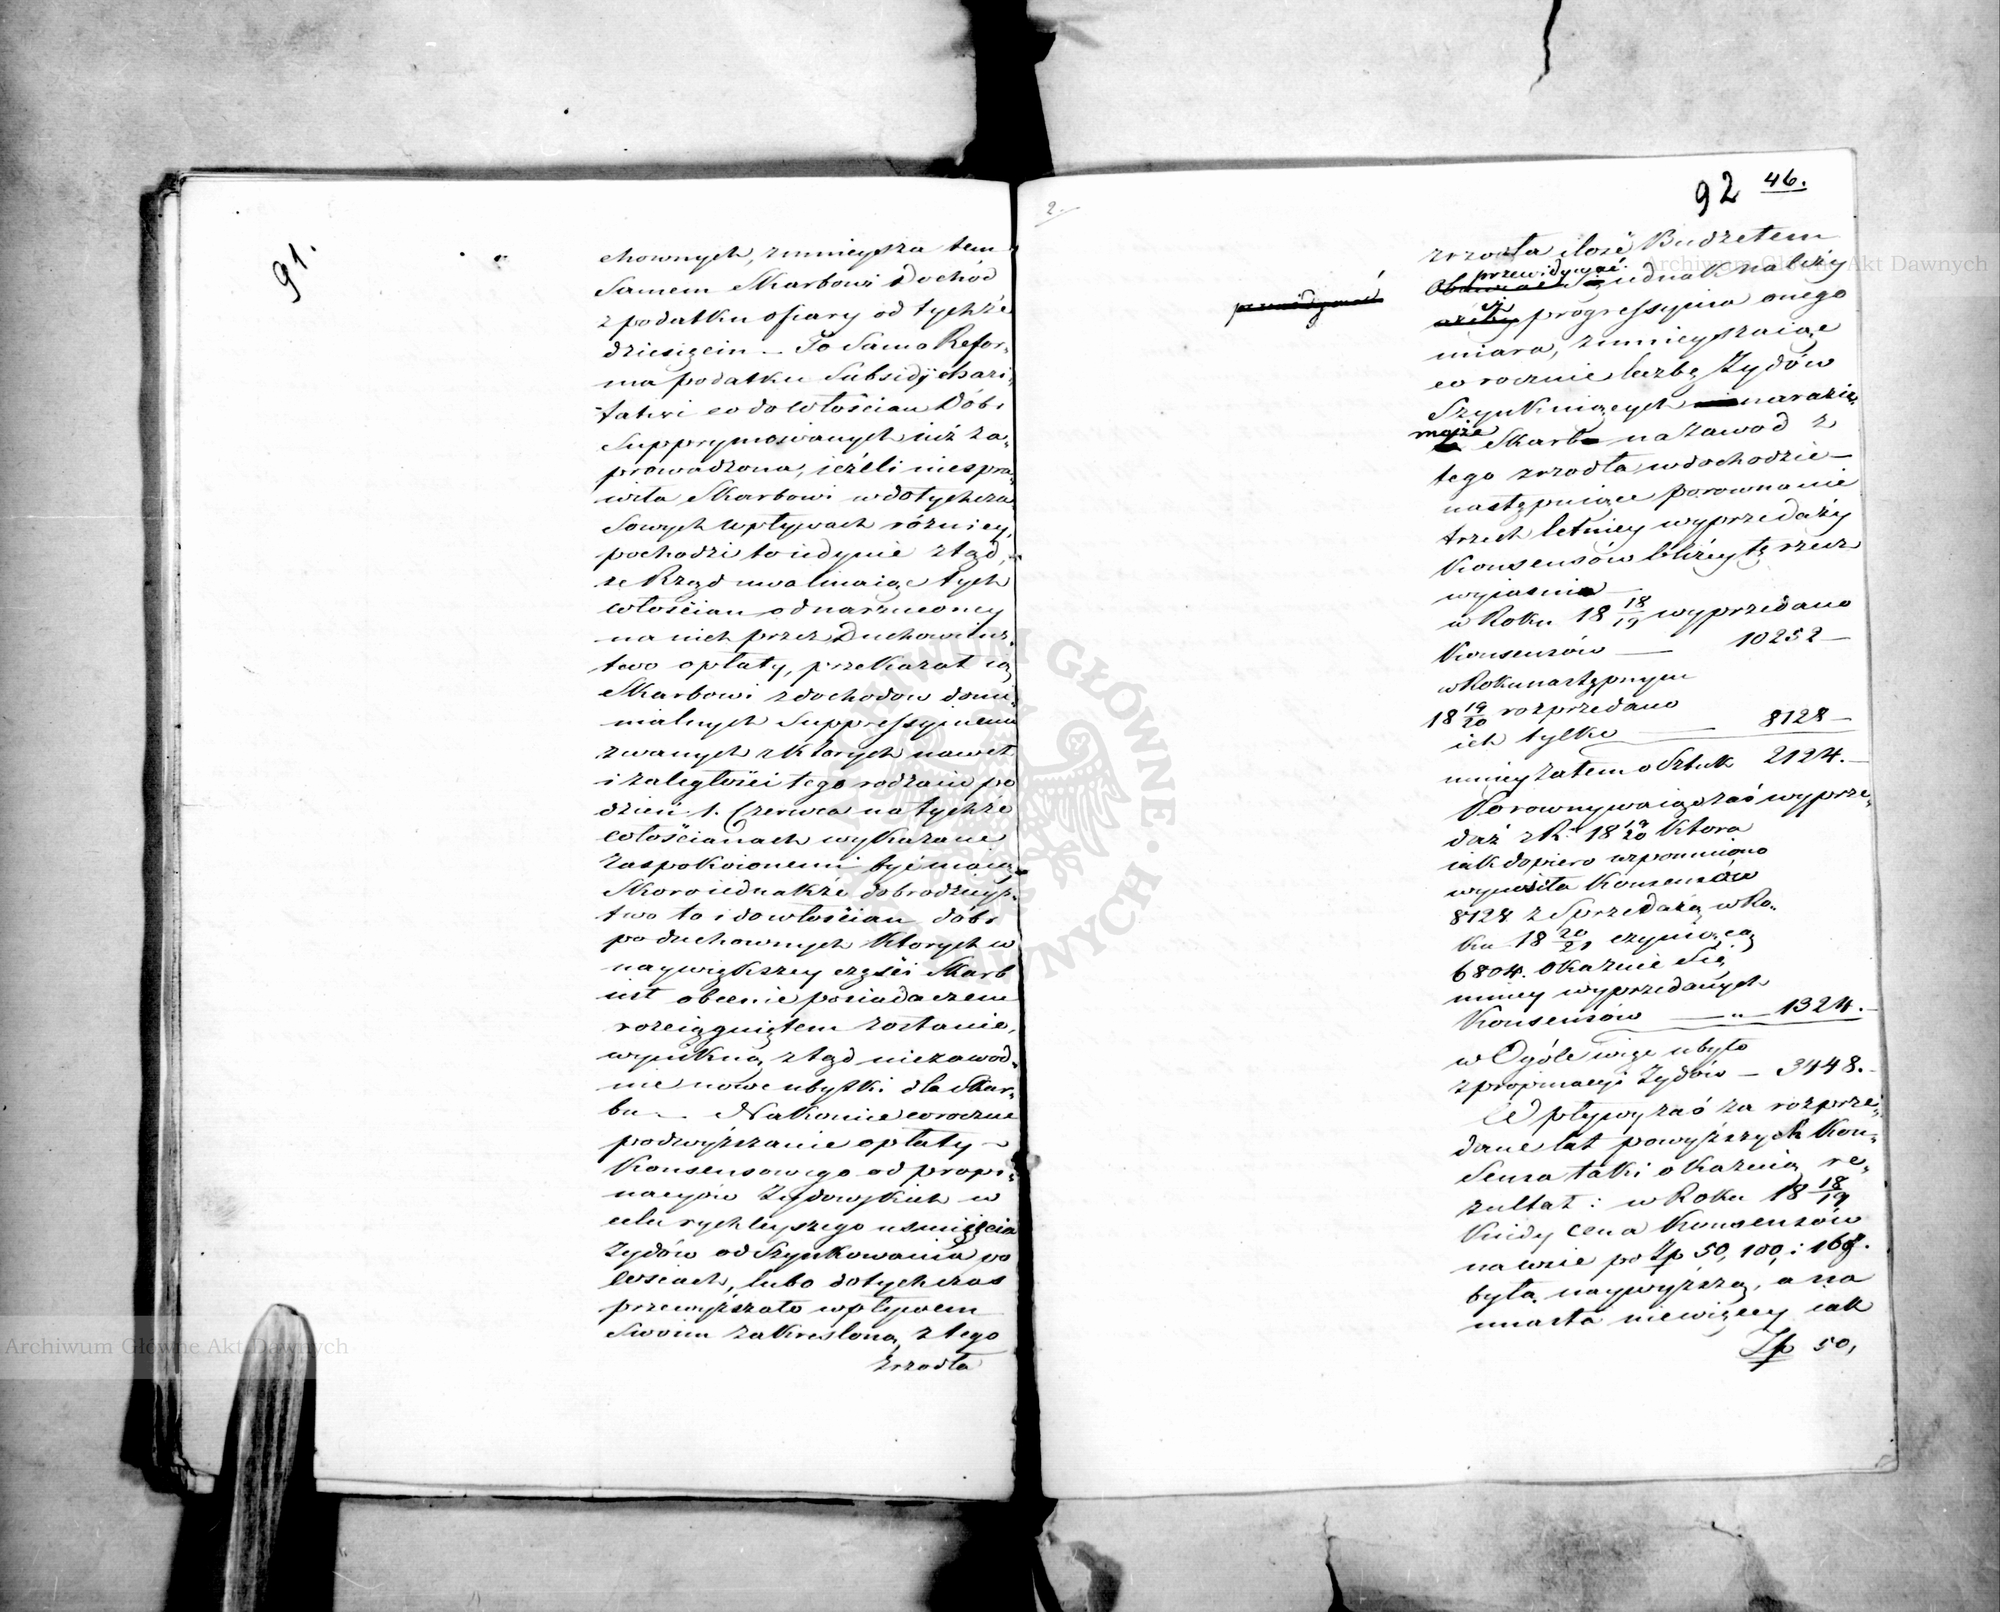 91.
chownych, zmnieysza tem
Samem Skarbowi dochód
z podatku ofiary od tychże
dziesięcin – Ta Sama Refor-
ma podatku Subsidij chari-
tativi co do Włościan Dóbr
Supprymowanych już za-
prowadzona, ieżeli niespra-
wiła Skarbowi w dotychcza
Sowych wpływach różnicy,
pochodzi to iedynie ztąd,
że Rząd uwalniaiąc tych
włościan od narzuconey
na nich przez Duchowieńs-
two opłaty, przekazał ią
Skarbowi z dochodów domi-
nialnych Suppressyinemi
zwanych z których nawet
i zaległości tego rodzaiu po
dzień 1. Czerwca na tychże
włościanach wykazane
zaspokoionemi być maią
Skoro iednakże dobrodzieys-
two to i do włościan dóbr
poduchownych których w
naywiększey części Skarb
iest obecnie posiadaczem
rozciągniętem zostanie,
wynikną ztąd niezawod-
nie nowe ubytki dla Skar-
bu – Nakoniec coroczne
podwyższanie opłaty –
Konsensowego od propi-
nacyów Żydowskich w
celu rychleyszego usunięcia
Żydów od Szynkowania po
wsiach, lubo dotychczas
przewyższało wpływem
Swoim zakreśloną z tego
zrzodła
92 46.
2.
zrzodła ilość Budżetem
przewidywać
iednak należy
przewidywać
iż progressyina onego
miara, zmnieyszaiąc
co rocznie liczbę Żydów
Szynkuiących narazić
może Skarb na zawod z
tego zrzodła w dochodzie –
następuiące porownanie
trzech letniey wyprzedaży
Konsensów bliżey tę rzecz
wyiaśnia
w Roku 18 18/19 wyprzedano
Konsensów — 10252 –
w Roku następnym
18 19/20 rozprzedano
ich tylko — 8128 –
mniey zatem o Sztuk 2124. –
Porownywaiąc zaś wyprze-
daż z R. 18 19/20 Ktora
iak dopiero wzpomniono
wynosiła Konsensów
8128 z Sprzedażą w Ro-
ku 18 20/21 czyniącą
6804. Okazuie Się
mniey wyprzedanych
Konsensów — „ — 1324. –
w Ogóle więc ubyło
z propinacyi Żydów – 3448. –
Wpływy zaś za rozprze-
dane lat powyższych Kon-
Sensa taki okazuią re-
zultat: w Roku 18 18/19
Kiedy cena Konsensów
na wsie po Zp 50, 100, i 168.
była naywyższą, a na
miasta niewięcey iak
Zp 50,
Archiwum Główne Akt Dawnych
Archiwum Główne Akt Dawnych
ARCHIWUM GŁÓWNE AKT DAWNYCH